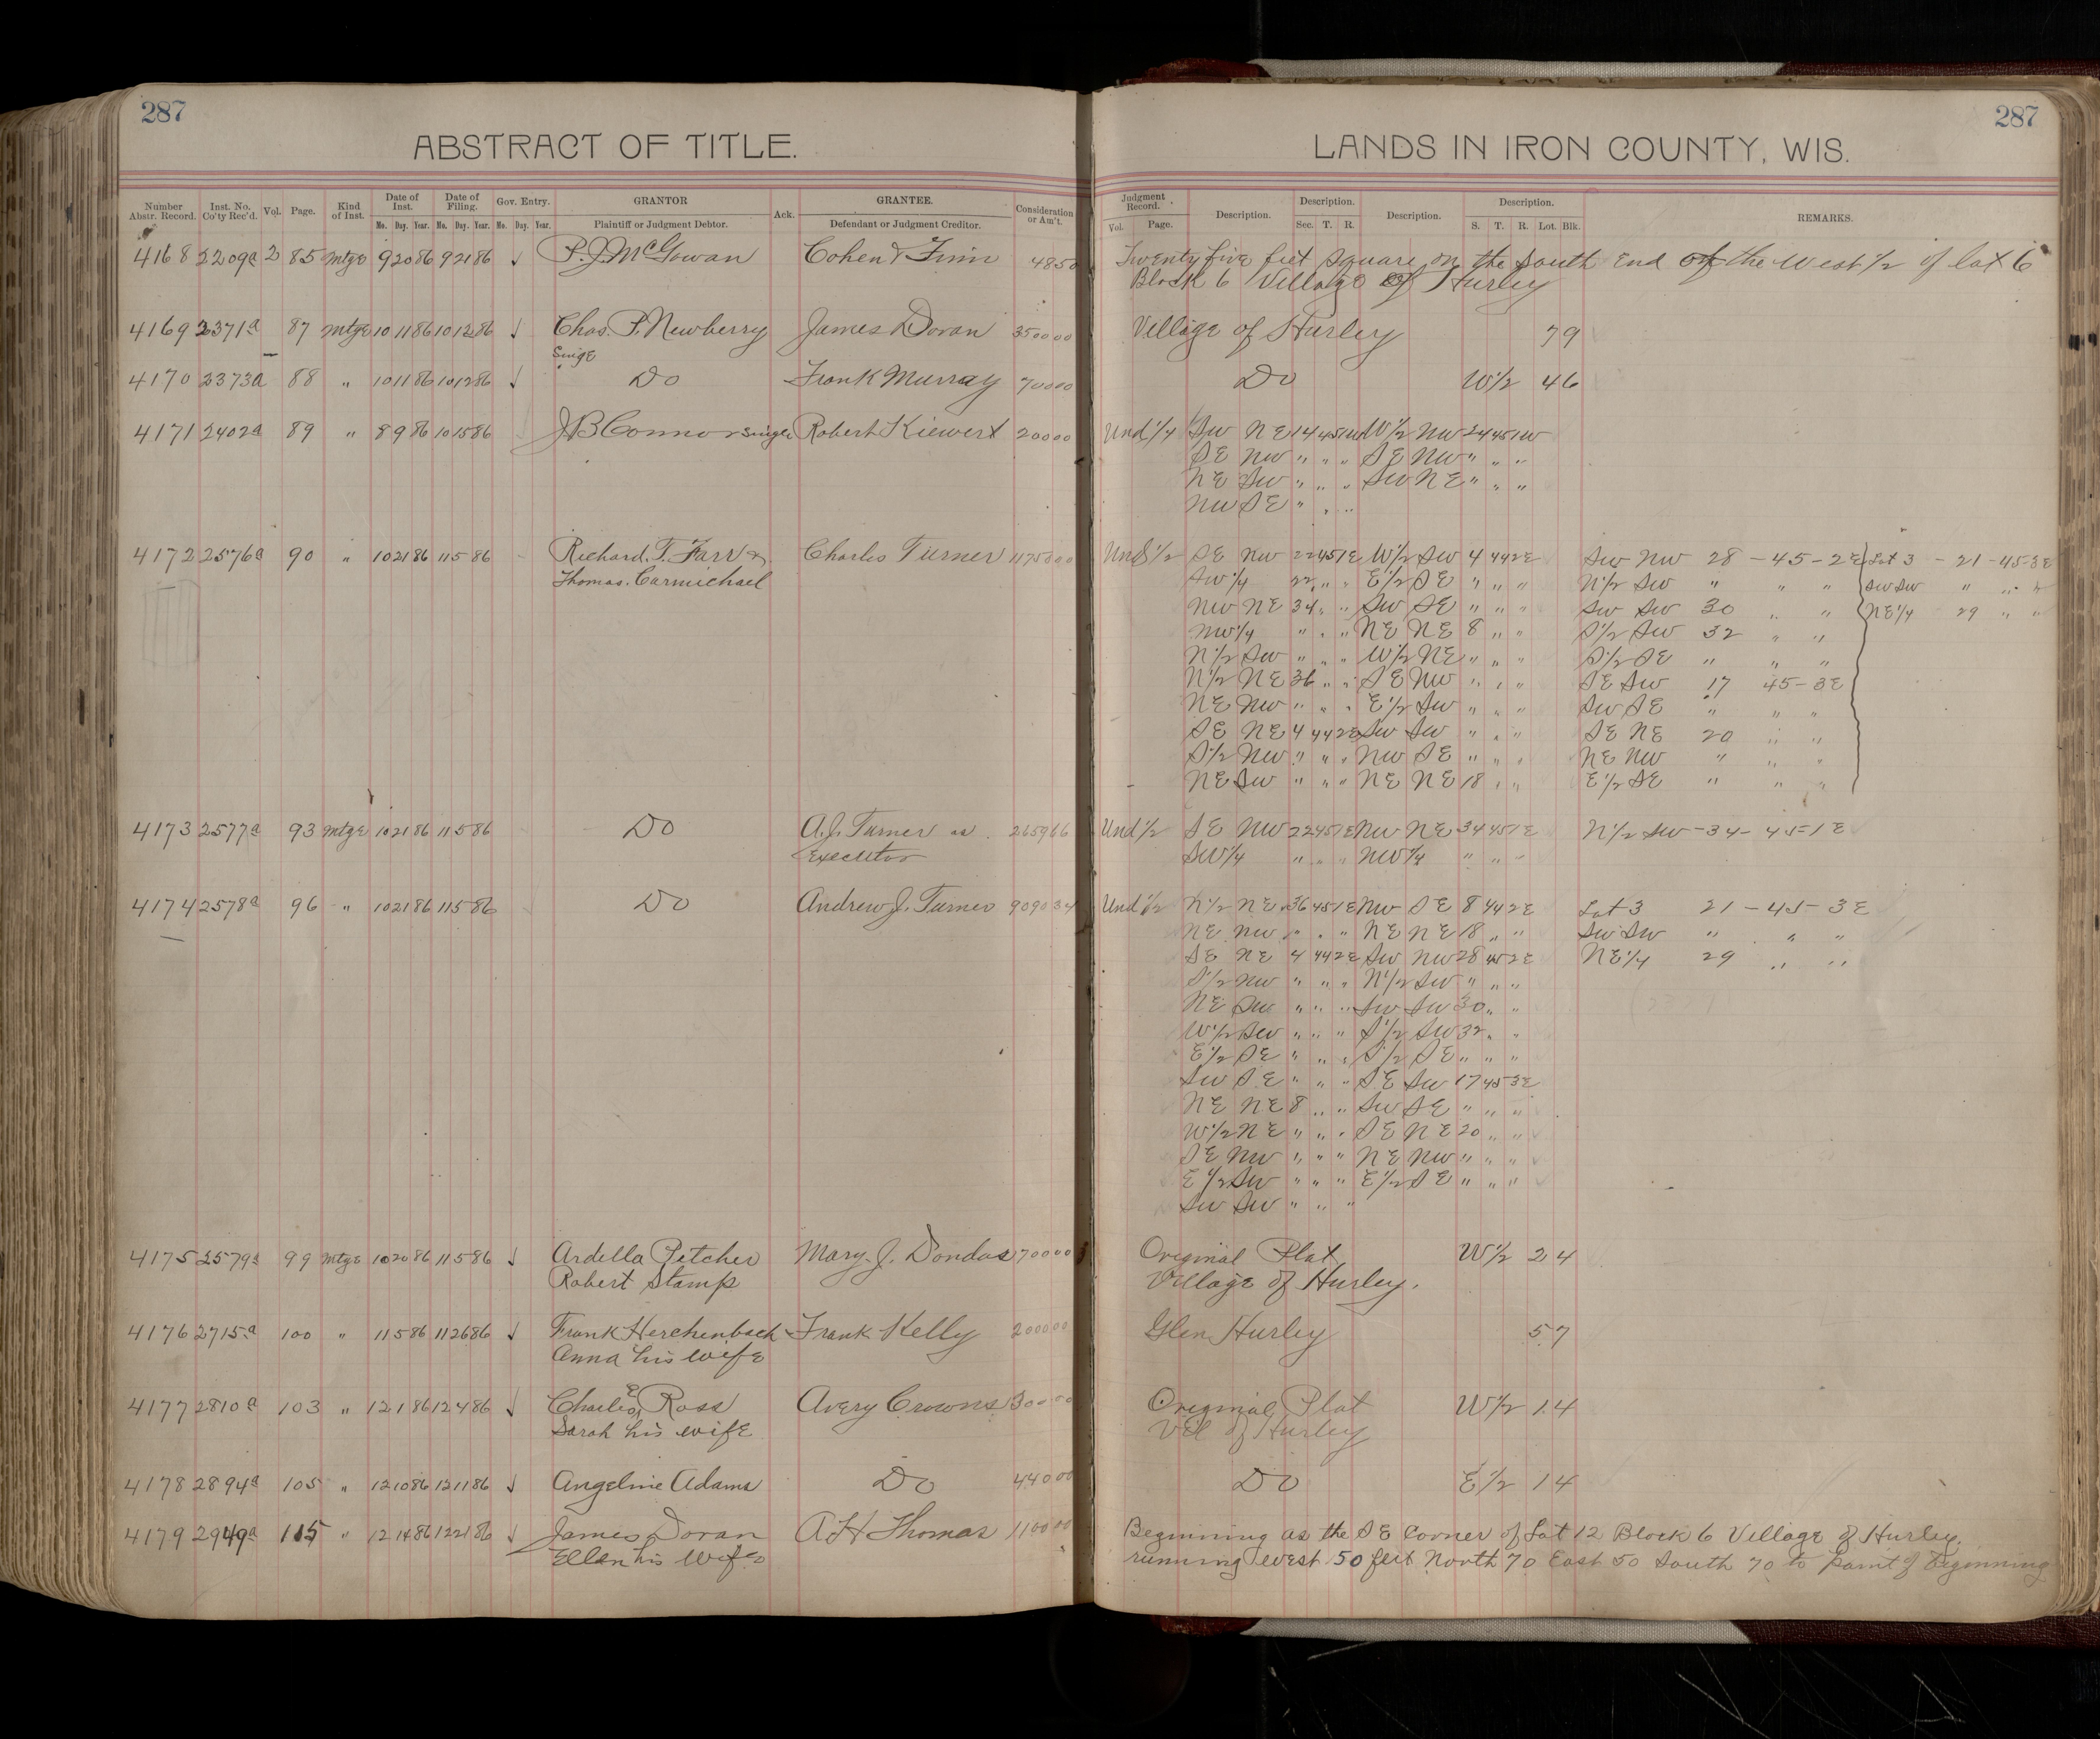 287
ABSTRACT OF TITLE.
Number Abstr. Record. Inst. No. Co'ty Rec'd. Vol. Page. Kind of Inst. Date of Inst. Mo. Day. Year. Date of Filing. Mo. Day. Year. Gov. Entry. Mo. Day. Year. GRANTOR Plaintiff or Judgment Debtor. Ack. GRANTEE. Defendant or Judgment Creditor. Consideration or Am't.
4168 2209a 2 85 mtge 9 20 86 9 21 86 P. J. McGowan Cohen & Finn 48 50
4169 2371a 87 mtge 10 11 86 10 12 86 Chas. P. Newberry James Doran 3500 00
Singe
4170 2373a 88 " 10 11 86 10 12 86 Do Frank Murray 700 00
4171 2402a 89 " 8 9 86 10 15 86 J B Connor Single Robert Kiewert 200 00
4172 2576a 90 " 10 21 86 11 5 86 Richard. T. Farr & Charles Turner
Thomas. Carmichael
4173 2577a 93 mtge 10 21 86 11 5 86 Do A. J. Turner as 2659 66
Executor
4174 2578a 96 " 10 21 86 11 5 86 Do Andrew J. Turner 9090 34
4175 2579a 99 mtge 10 20 86 11 5 86 Ardella Pitcher Mary. J. 700 00
Robert Stamp
4176 2715a 100 " 11 5 86 11 26 86 Frank Herchenbach Frank Kelly 2000 00
Anna his wife
4177 2810a 103 " 12 1 86 12 4 86 Charles E Ross Avery Crowns 300 00
Sarah his wife
4178 2894a 105 " 12 10 86 12 11 86 Angeline Adams Do 440 00
4179 2949a 115 " 12 14 86 12 21 86 James Doran A H Thomas 1100 00
Ellen his wife
287
LANDS IN IRON COUNTY, WIS.
Judgment Record. Vol. Page. Description. Description. Sec. T. R. Description. Description. S. T. R. Lot. Blk. REMARKS.
Twenty five feet square on the South End of the West 1/2 of lot 6
Block 6 Village of Hurley
Village of Hurley 79
Do W 1/2 46
Und 1/4 SW NE 14 45 1W W 1/2 NW 24 45 1W
SE NW " " " SE NW " " "
NE SW " " " SW NE " " "
NW SE " " "
Und 1/2 SE NW 22 45 1E W 1/2 SW 4 44 2E SW NW 28 - 45 - 2E Lot 3 - 21 - 45 - 3E
SW 1/4 22 " " E 1/2 SE " " " N 1/2 SW " " " SW SW " " "
NW NE 34 " " SW SE " " " SW SW 30 " " NE 1/4 29 " "
NW 1/4 " " " NE NE 8 " " S 1/2 SW 32 " "
N 1/2 SW " " " W 1/2 NE " " " S 1/2 SE " " "
N 1/2 NE 36 " " SE NW " " " SE SW 17 45 - 3E
NE NW " " " E 1/2 SW " " " SW SE " " "
SE NE 4 44 2E SW SW " " " SE NE 20 " "
S 1/2 NW " " " NW SE " " " NE NW " " "
NE SW " " " NE NE 18 " " E 1/2 SE " " "
Und 1/2 SE NW 22 45 1E NW NE 34 45 1E N 1/2 SW - 34 - 45 - 1E
SW 1/4 " " " NW 1/4 " " "
Und 1/2 N 1/2 NE 36 45 1E NW SE 8 44 2E Lot 3 21 - 45 - 3E
NE NW " " " NE NE 18 " " SW SW " " "
SE NE 4 44 2E SW NW 28 45 2E NE 1/4 29 " "
S 1/2 NW " " " N 1/2 SW " " "
NE SW " " " SW SW 30 " "
W 1/2 SW " " " S 1/2 SW 32 " "
E 1/2 SE " " " S 1/2 SE " " "
SW SE " " " SE SW 17 45 3E
NE NE 8 " " SW SE " " "
W 1/2 NE " " " SE NE 20 " "
SE NW " " " NE NW " " "
E 1/2 SW " " " E 1/2 SE " " "
SW SW " " "
Original Plat W 1/2 24
Village of Hurley.
Glen Hurley 57
Original Plat W 1/2 14
Vil of Hurley
Do E 1/2 14
Beginning as the SE Corner of Lot 12 Block 6 Village of Hurley.
running West 50 feet North 70 East 50 South 70 to point of Beginning